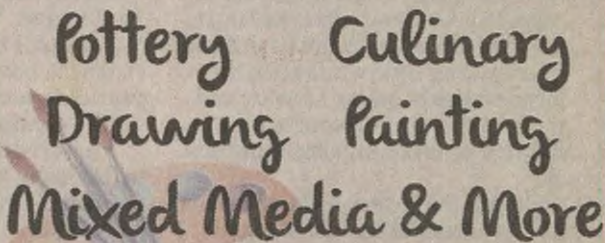 Pottery Culinary
Drawing Painting
Mixed Media & More